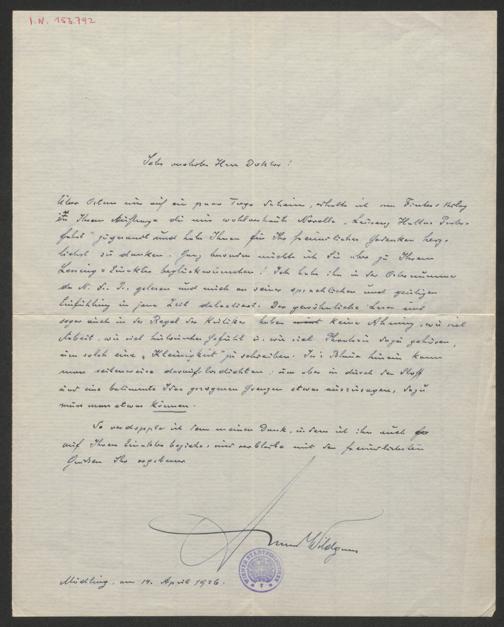 I.N. 153.792
Sehr verehrter Herr Doktor!
Über Ostern nur auf ein paar Tage daheim, erhalte ich vom
in Ihrem Auftrage die mir wohlbekannte Novelle „
fahrt" zugesandt und habe Ihnen für Ihr freundliches Gedenken herz-
lichst zu danken. Ganz besonders möchte ich Sie aber zu Ihrem
Lessing-Einakter beglückwünschen! Ich habe ihn in der Osternummer
der N. F. P. gelesen und mich an seiner sprachlichen und geistigen
Einfühlung in jene Zeit delectiert. Der gewöhnliche Leser und
sogar auch in der Regel der Kritiker haben keine Ahnung, wie viel
Arbeit, wie viel historisches Gefühl u. wie viel Phantasie dazu gehören,
um solch eine „Kleinigkeit" zu schreiben. In's Blaue hinein kann
man seitenweise darauflosdichten; um aber in durch den Stoff
und eine bestimmte Idee gezogenen Grenzen etwas auszusagen, dazu
muss man etwas können.
So verdopple ich denn meinen Dank, indem ich ihn auch
auf Ihren Einakter beziehe, und verbleibe mit den freundlichsten
Grüßen Ihr ergebener
Anton Wildgans
Mödling, am 14. April 1926.